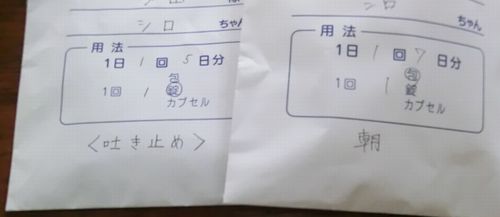 シロ
ちゃん
用法
1日 1 回 5 日分
包
1回 1 錠
カプセル
<吐き止め>
シロ
ちゃん
用法
1日 1 回 7 日分
包
1回 1 錠
カプセル
朝